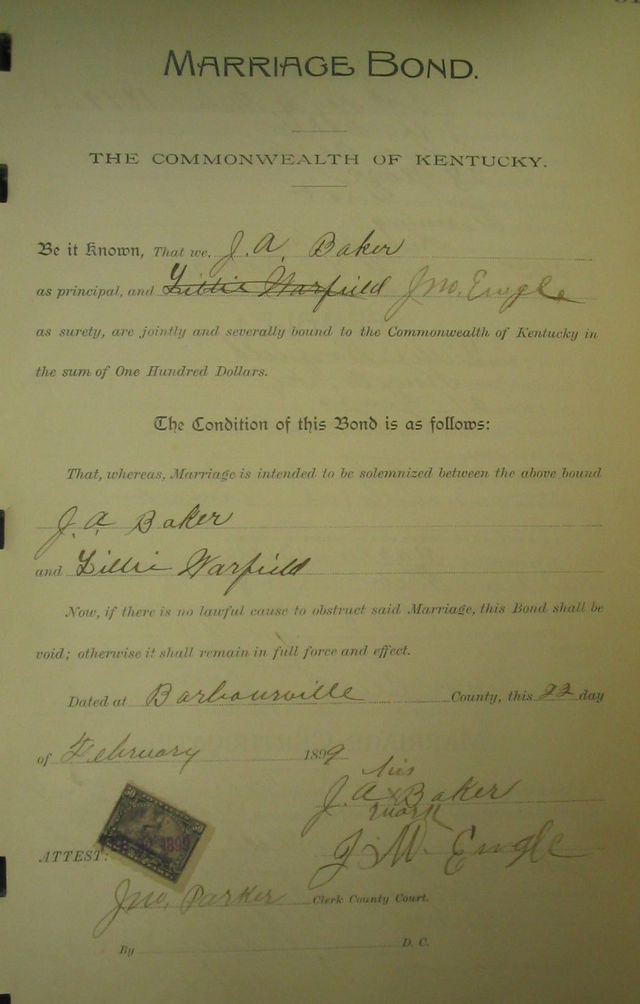 MARRIAGE BOND.
THE COMMONWEALTH OF KENTUCKY.
Be it Known, That we, J. A. Baker
as principal, and Lillie Warfield Jno. Engle
as surety, are jointly and severally bound to the Commonwealth of Kentucky in
the sum of One Hundred Dollars.
The Condition of this Bond is as follows:
That, whereas, Marriage is intended to be solemnized between the above bound
J. A. Baker
and Lillie Warfield
Now, if there is no lawful cause to obstruct said Marriage, this Bond shall be
void; otherwise it shall remain in full force and effect.
Dated at Barbourville County, this 22 day
of February 1899
his
J. A. x Baker
mark
ATTEST:
J. W. Engle
Jno. Parker Clerk County Court.
By D. C.